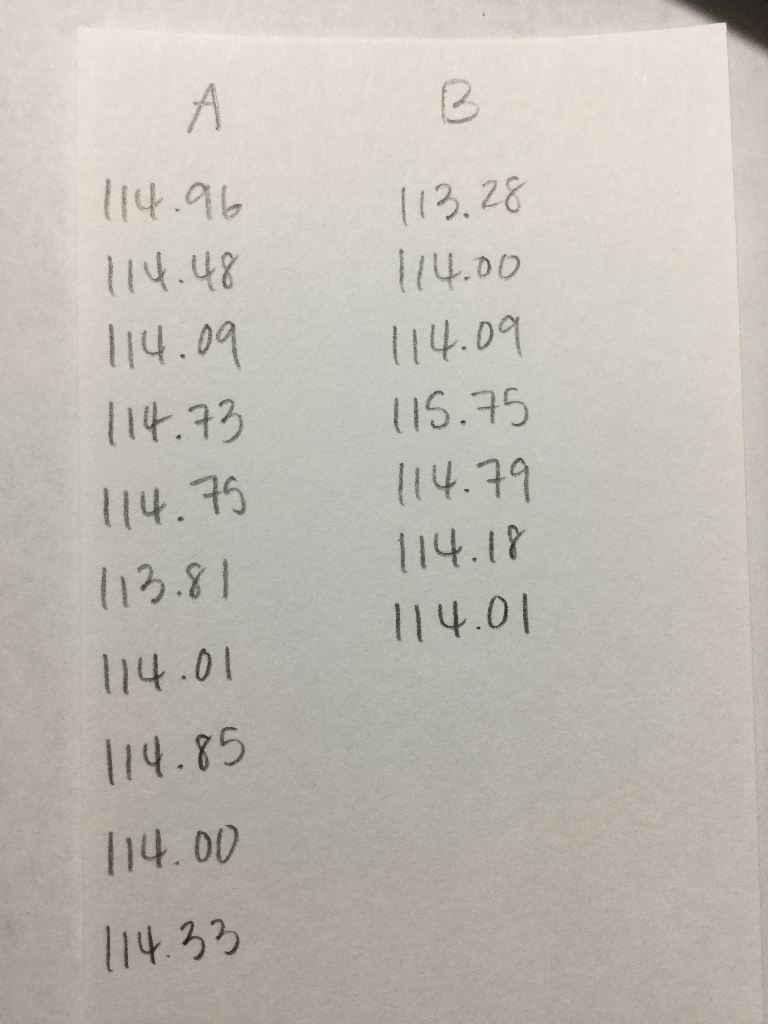 A B
114.96 113.28
114.48 114.00
114.09 114.09
114.73 115.75
114.75 114.79
113.81 114.18
114.01 114.01
114.85
114.00
114.33